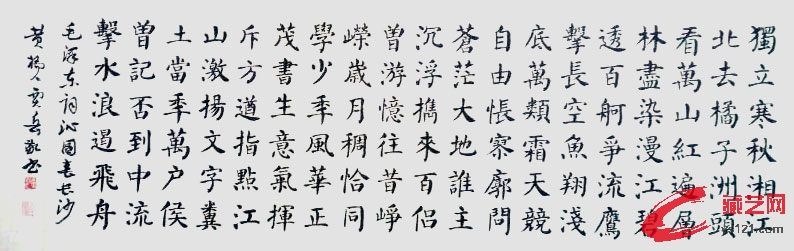 獨立寒秋湘江
北去橘子洲頭
看萬山紅遍層
林盡染漫江碧
透百舸爭流鷹
擊長空魚翔淺
底萬類霜天競
自由悵寥廓問
蒼茫大地誰主
沉浮攜來百侶
曾游憶往昔崢
嶸歲月稠恰同
學少年風華正
茂書生意氣揮
斥方遒指點江
山激揚文字糞
土當年萬户侯
曾記否到中流
擊水浪遏飛舟
毛泽东词沁園春长沙
藏艺网